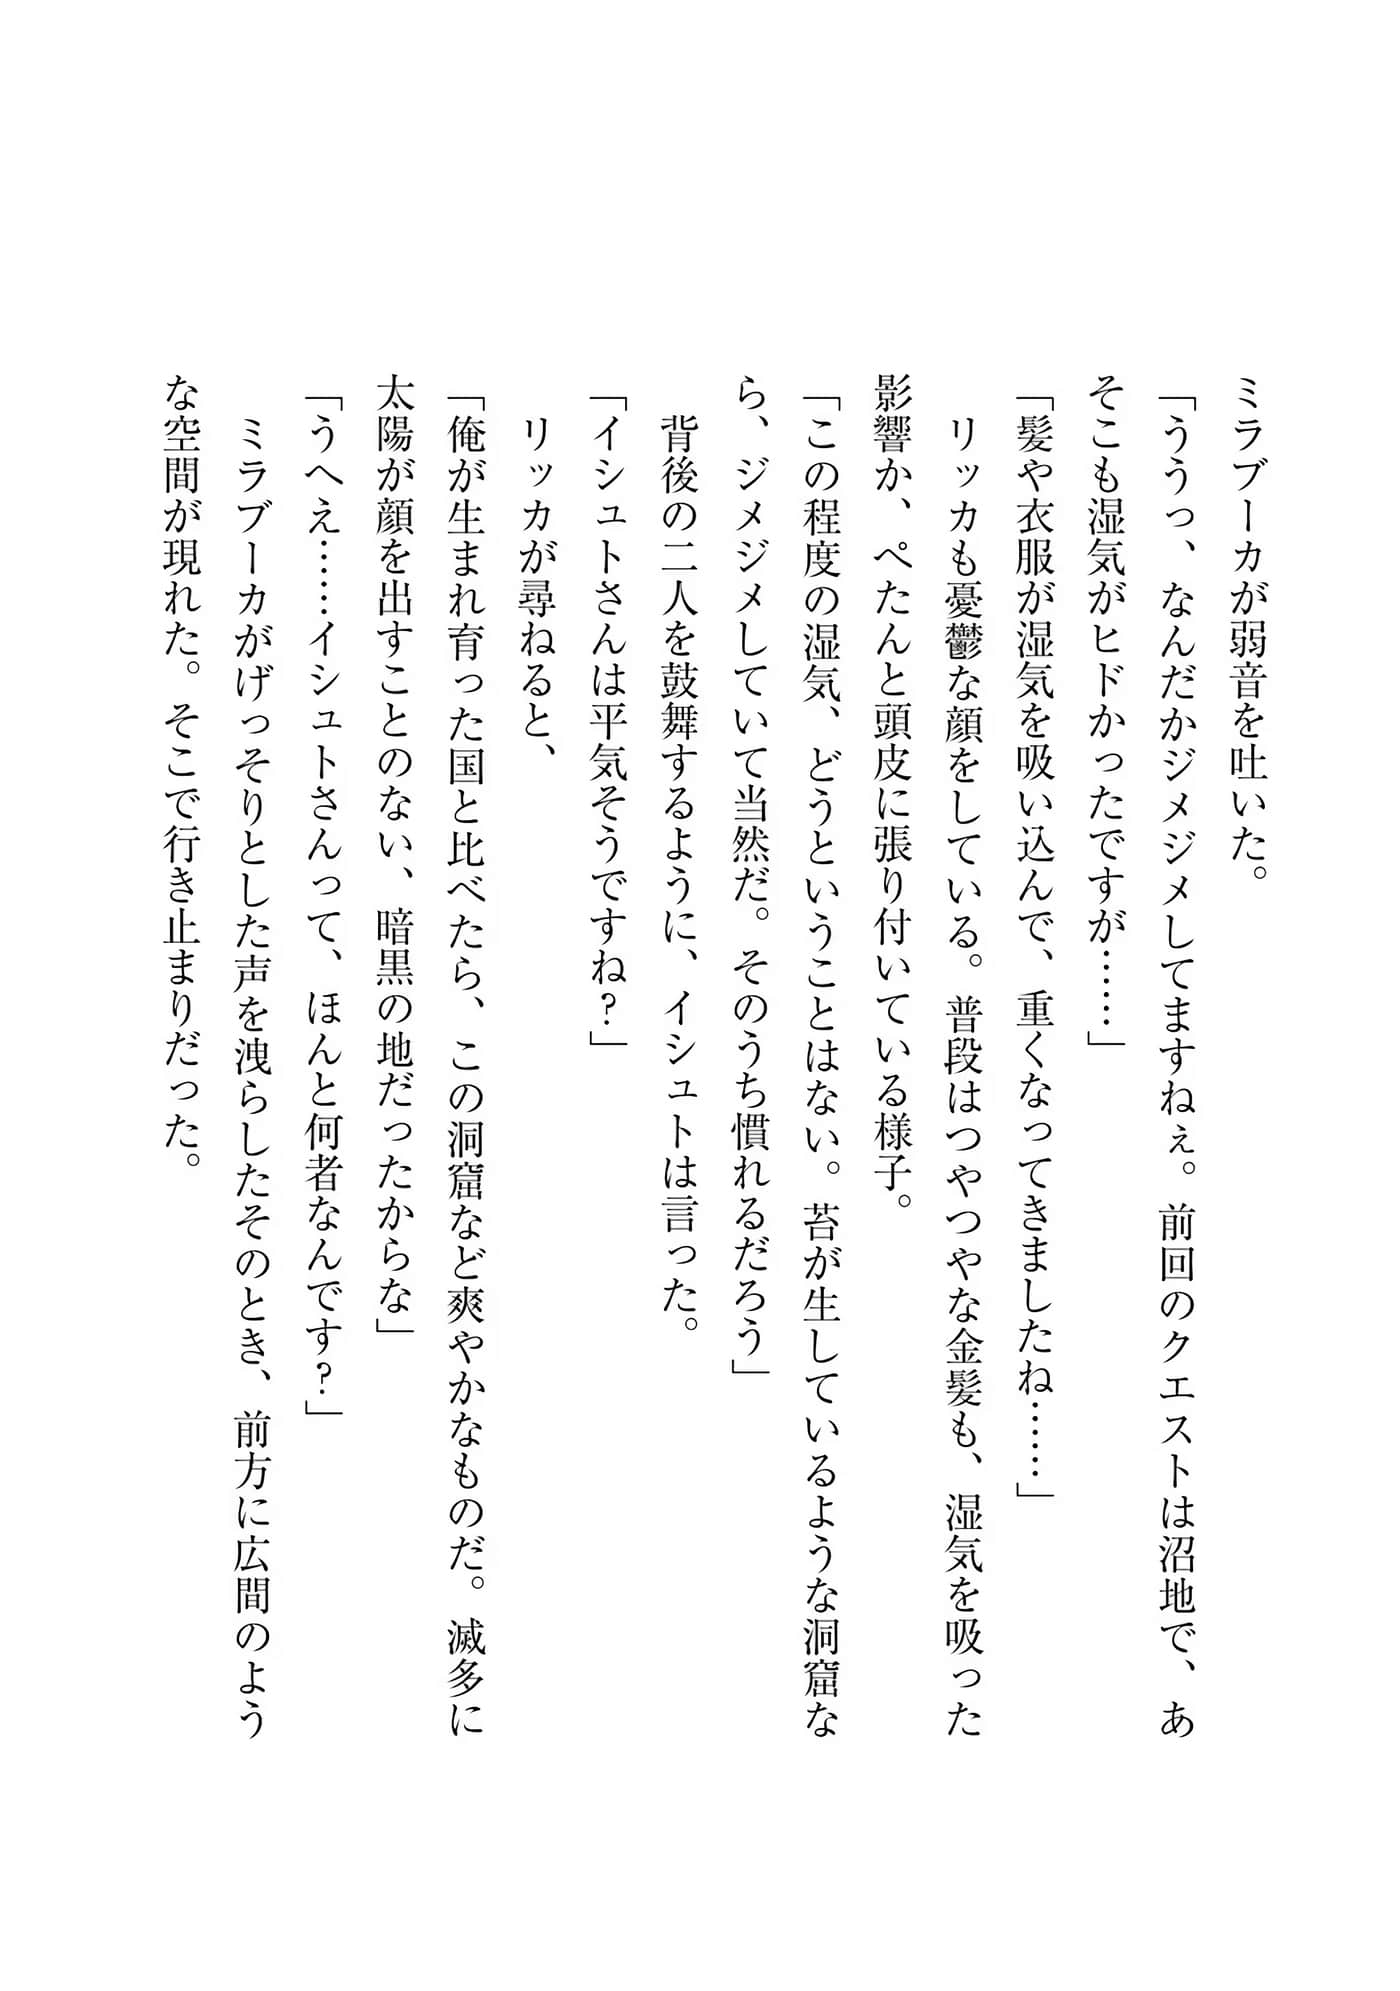 ミラブーカが弱音を吐いた。
「ううっ、なんだかジメジメしてますねぇ。前回のクエストは沼地で、あ
そこも湿気がヒドかったですが……」
「髪や衣服が湿気を吸い込んで、重くなってきましたね……」
　リッカも憂鬱な顔をしている。普段はつやつやな金髪も、湿気を吸った
影響か、ぺたんと頭皮に張り付いている様子。
「この程度の湿気、どうということはない。苔が生しているような洞窟な
ら、ジメジメしていて当然だ。そのうち慣れるだろう」
　背後の二人を鼓舞するように、イシュトは言った。
「イシュトさんは平気そうですね？」
　リッカが尋ねると、
「俺が生まれ育った国と比べたら、この洞窟など爽やかなものだ。滅多に
太陽が顔を出すことのない、暗黒の地だったからな」
「うへえ……イシュトさんって、ほんと何者なんです？」
　ミラブーカがげっそりとした声を洩らしたそのとき、前方に広間のよう
な空間が現れた。そこで行き止まりだった。